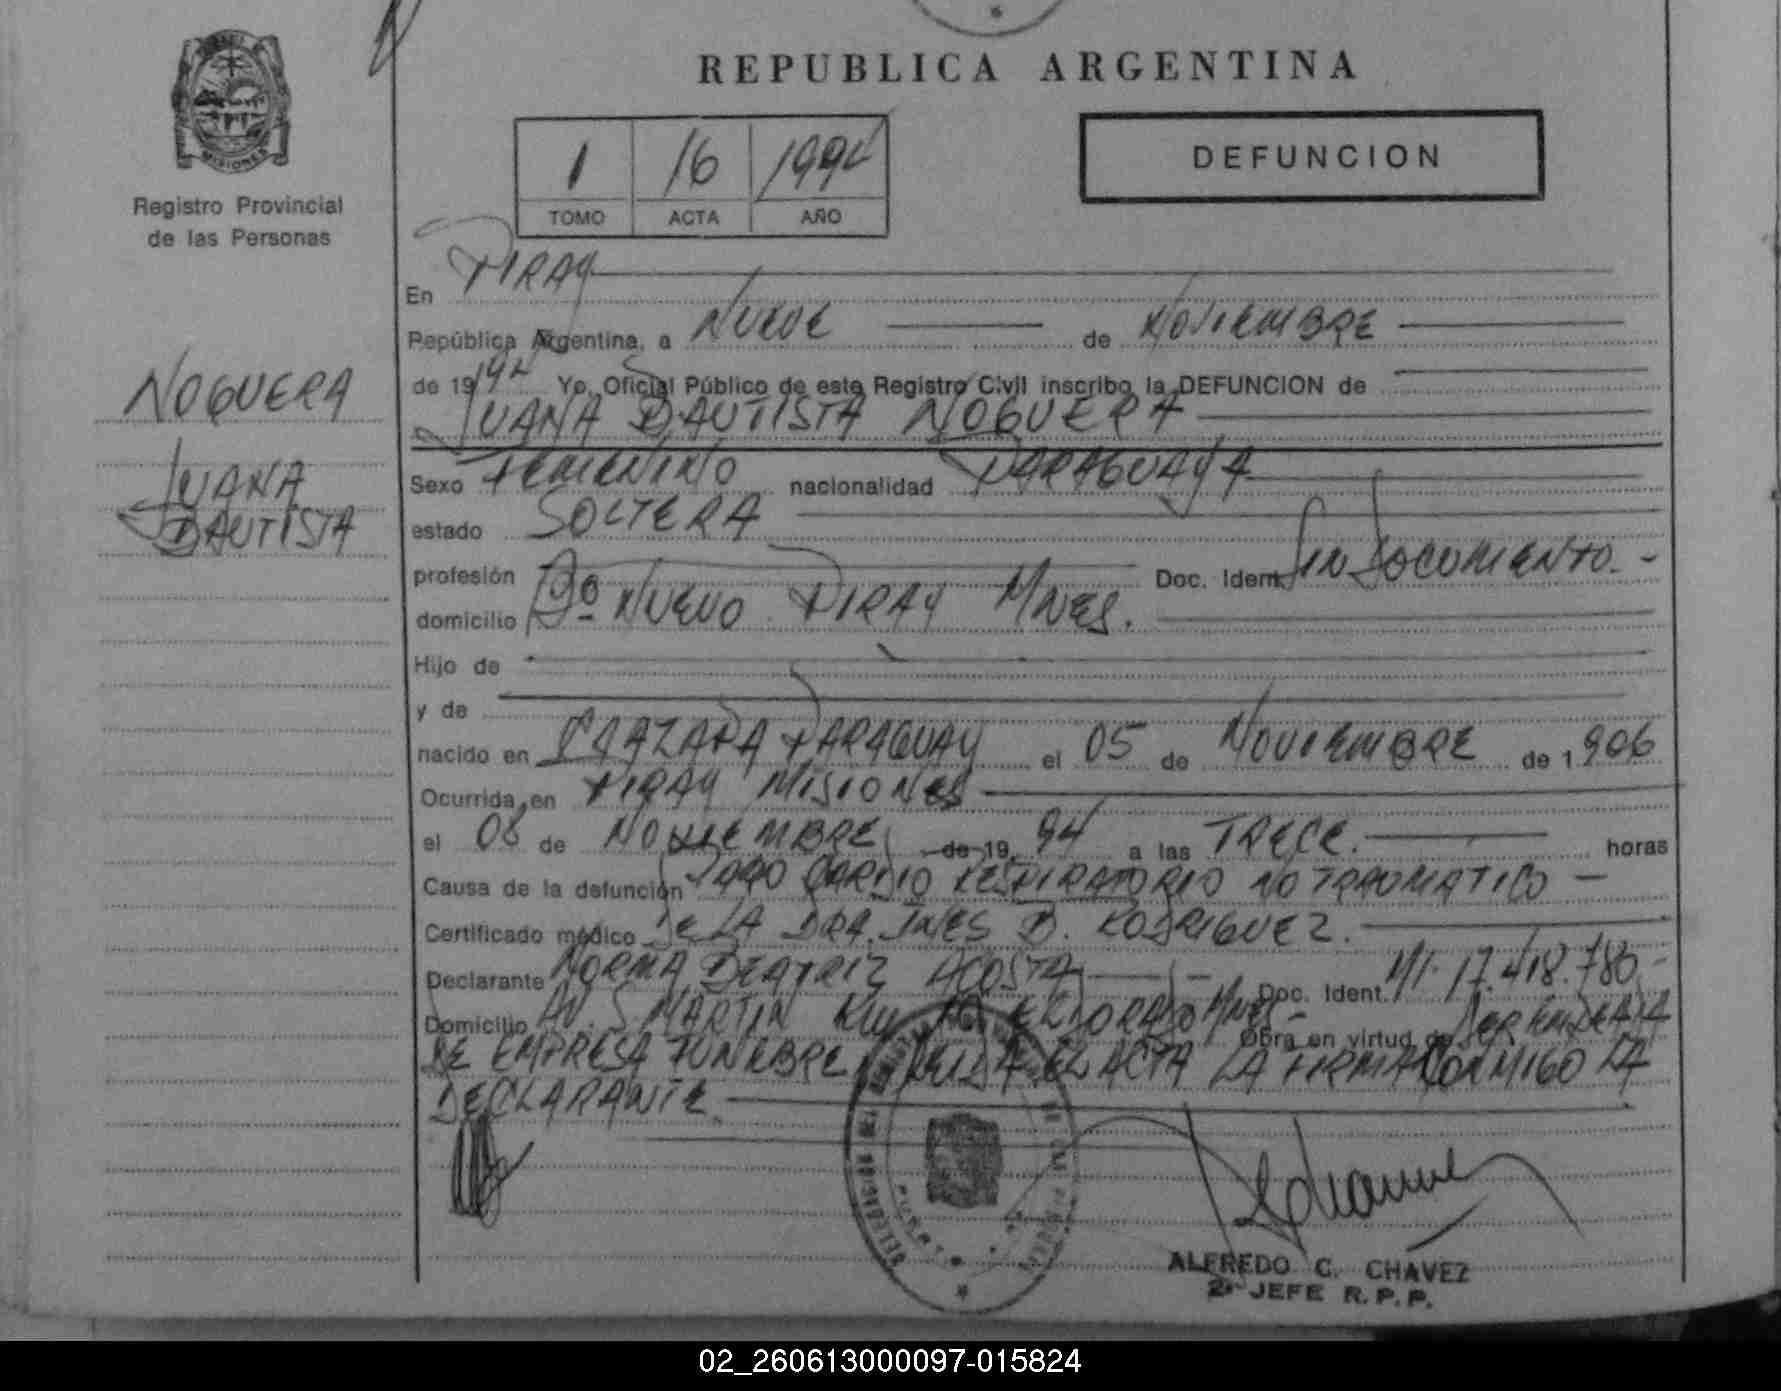 REPUBLICA ARGENTINA
MISIONES
Registro Provincial
de las Personas
1 16 1994
TOMO ACTA AÑO
DEFUNCION
NOGUERA
JUANA
BAUTISTA
En PIRAY
República Argentina, a NUEVE de NOVIEMBRE
de 1994 Yo, Oficial Público de este Registro Civil inscribo la DEFUNCION de
JUANA BAUTISTA NOGUERA
Sexo FEMENINO nacionalidad PARAGUAYA
estado SOLTERA
profesión Doc. Ident. SIN DOCUMENTO.-
domicilio Bº NUEVO PIRAY MNES.
Hijo de
y de
nacido en CAAZAPA PARAGUAY el 05 de NOVIEMBRE de 1.906
Ocurrida en PIRAY MISIONES
el 08 de NOVIEMBRE de 19 94 a las TRECE. horas
Causa de la defunción PARO CARDIO RESPIRATORIO NO TRAUMATICO -
Certificado médico DE LA DRA. INES B. RODRIGUEZ.
Declarante NORMA BEATRIZ ACOSTA Doc. Ident. M/I. 17.418.780-
Domicilio AV. S. MARTIN KM ELDORADO MNES- Obra en virtud de SER EMPLEADA
DE EMPRESA FUNEBRE. LEIDA EL ACTA LA FIRMA CONMIGO LA
DECLARANTE.
ALFREDO C. CHAVEZ
2º JEFE R.P.P.
02_260613000097-015824